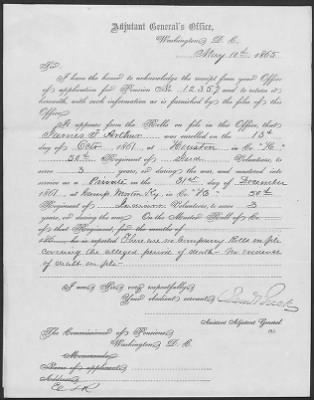 Adjutant General's Office,
Washington D. C.
May 10th 1865
Sir:
I have the honor to acknowledge the receipt from your Office
of application for Pension No. 12,357 and to return it
herewith with such information as is furnished by the files of this
Office.
It appears from the Rolls on file in this Office, that
James T Arthur was enrolled on the 13th
day of Octr 1861 at in Co.
50th Regiment of Ind Volunteers, to
serve 3 years, or during the war, and mustered into
service as a Private on the 31st day of December
1861, at Camp Morton Ky, in Co. 50th
Regiment of Indiana Volunteers, to serve 3
years, or during the war. On the Muster Roll of Co
of that Regiment for the months of
he is reported There are no Company Rolls on file
covering the alleged period of death - No evidence
of death on file -
I am Sir very respectfully
Your obedient servant
Assistant Adjutant General.
The Commissioner of Pensions
Washington D. C.
Memoranda
Name of applicant
Address